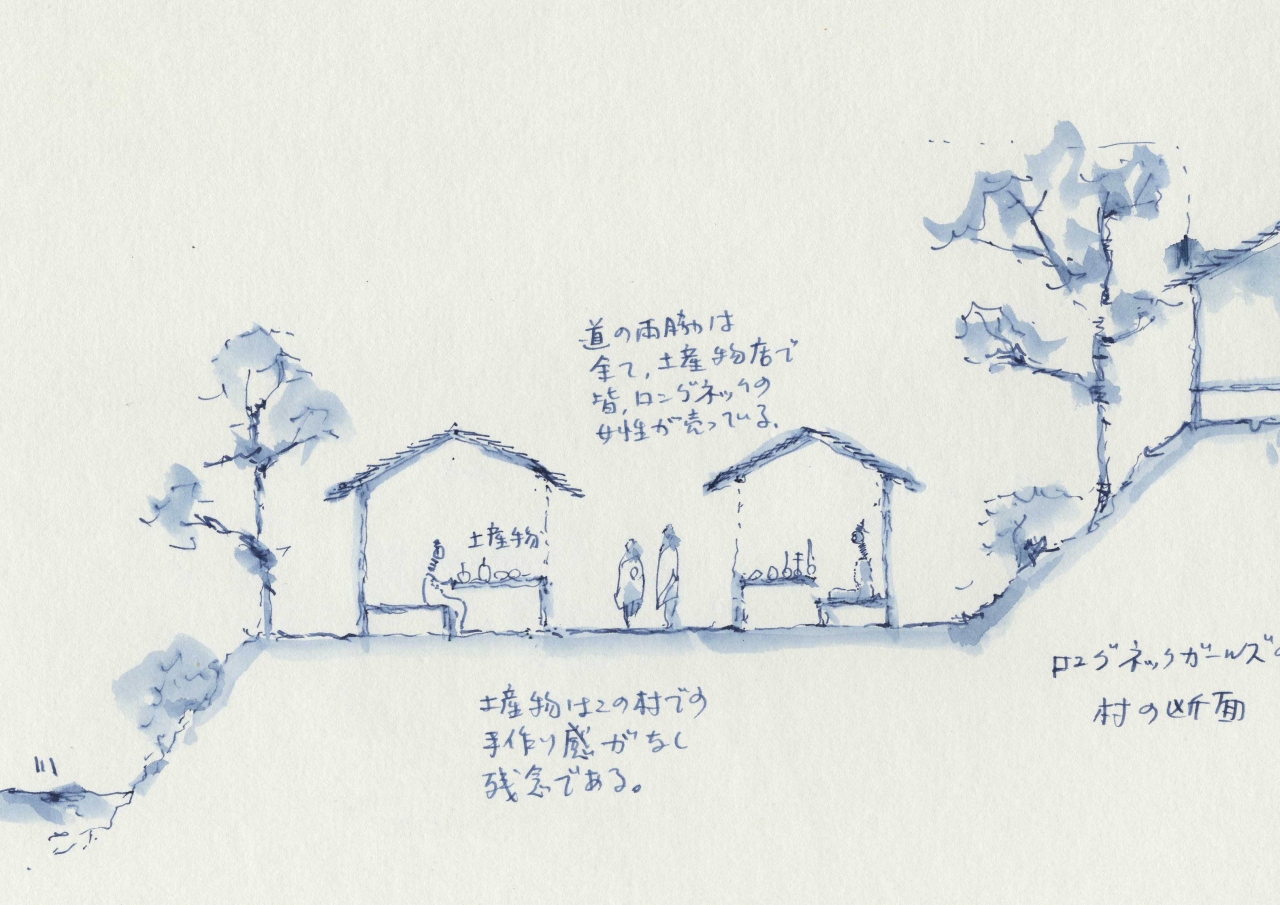 道の両脇は
全て、土産物店で
皆、ロングネックの
女性が売っている。
土産物
土産物はこの村での
手作り感がなし
残念である。
ロングネックガールズの
村の断面
川